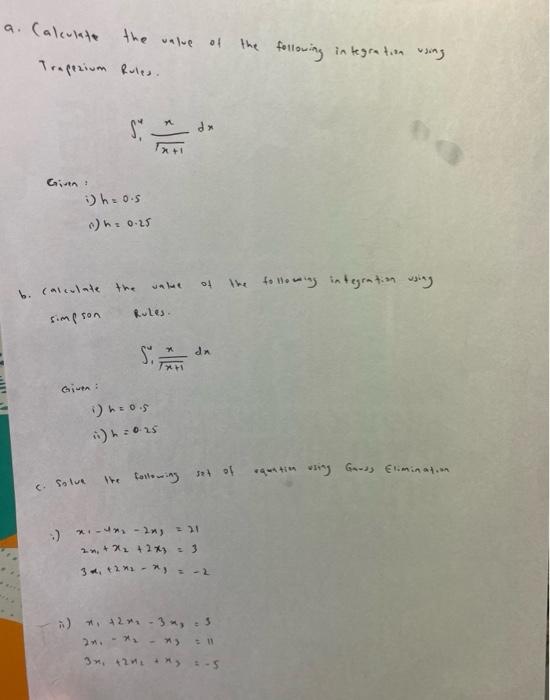 a. Calculate the value of the following integration using
Trapezium Rules.
∫₁⁴ x/√(x+1) dx
Given :
i) h = 0.5
ii) h = 0.25
b. Calculate the value of the following integration using
Simpson Rules.
∫₁⁴ x/√(x+1) dx
Given :
i) h = 0.5
ii) h = 0.25
c. Solve the following set of equation using Gauss Elimination
i) x₁ - 4x₂ - 2x₃ = 21
2x₁ + x₂ + 2x₃ = 3
3x₁ + 2x₂ - x₃ = -2
ii) x₁ + 2x₂ - 3x₃ = 3
2x₁ - x₂ - x₃ = 11
3x₁ + 2x₂ + x₃ = -5